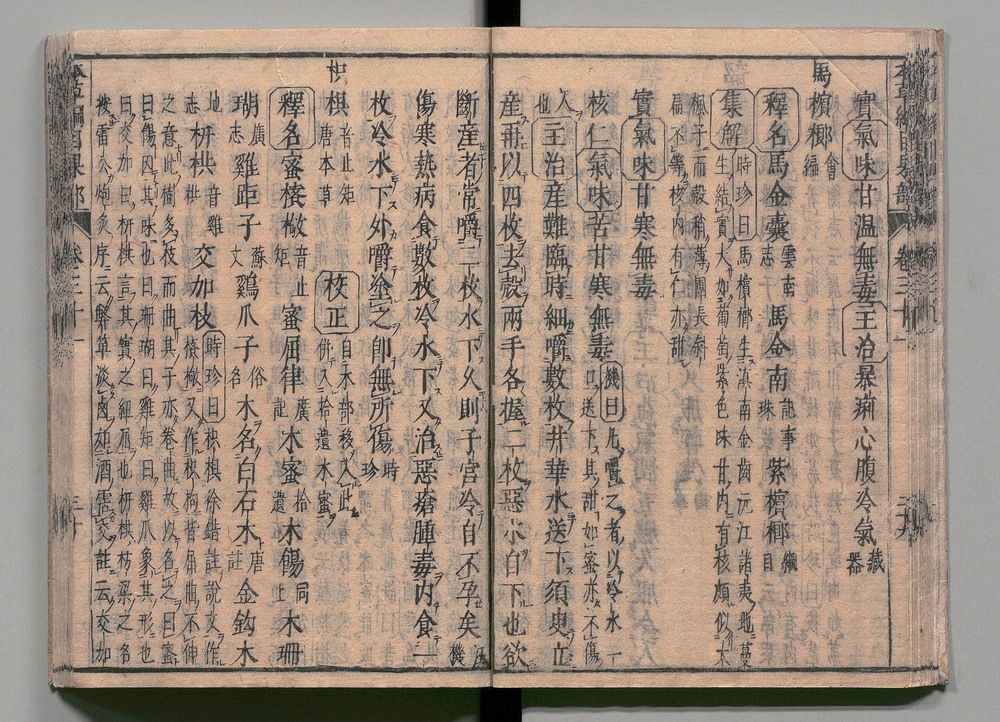 實氣味甘溫無毒主治暴痢心腹冷氣藏器
馬檳榔會編
釋名馬金囊雲南志馬金南記事珠紫檳榔綱目
集解時珍曰馬檳榔生滇南金齒沅江諸夷地蔓
生結實大如葡萄紫色味甘內有核頗似大
楓子而殼稍薄團長斜
扁不等核內有仁亦甜
實氣味甘寒無毒
核仁氣味苦甘寒無毒機曰凡嚼之者以冷水一
口送下其甜如蜜亦不傷
人也主治産難臨時細嚼數枚井華水送下須臾立
産再以四枚去殼兩手各握二枚惡水自下也欲
斷産者常嚼二枚水下久則子宮冷自不孕矣汪機
傷寒熱病食數枚冷水下又治惡瘡腫毒內食一
枚冷水下外嚼塗之卽無所傷時珍
枳椇音止矩唐本草校正自木部移入此併入拾遺木蜜
釋名蜜𣖌𣕌音止矩蜜屈律廣記木蜜拾遺木餳同上木珊
瑚廣志雞距子蘇文鷄爪子俗名木名白石木唐註金鈎木
地志枅栱音雞交加枝時珍曰枳椇徐鍇註說文作
𣖌𣕌又作枳枸皆屈曲不伸
之意此樹多枝而曲其子亦卷曲故以名之曰蜜
曰餳因其味也曰珊瑚曰雞距曰雞爪象其形也
曰交加曰枅栱言其實之紐屈也枅栱枋梁之名
按雷公炮炙序云弊箄淡鹵如酒霑交註云交加
本草綱目果部
卷三十一